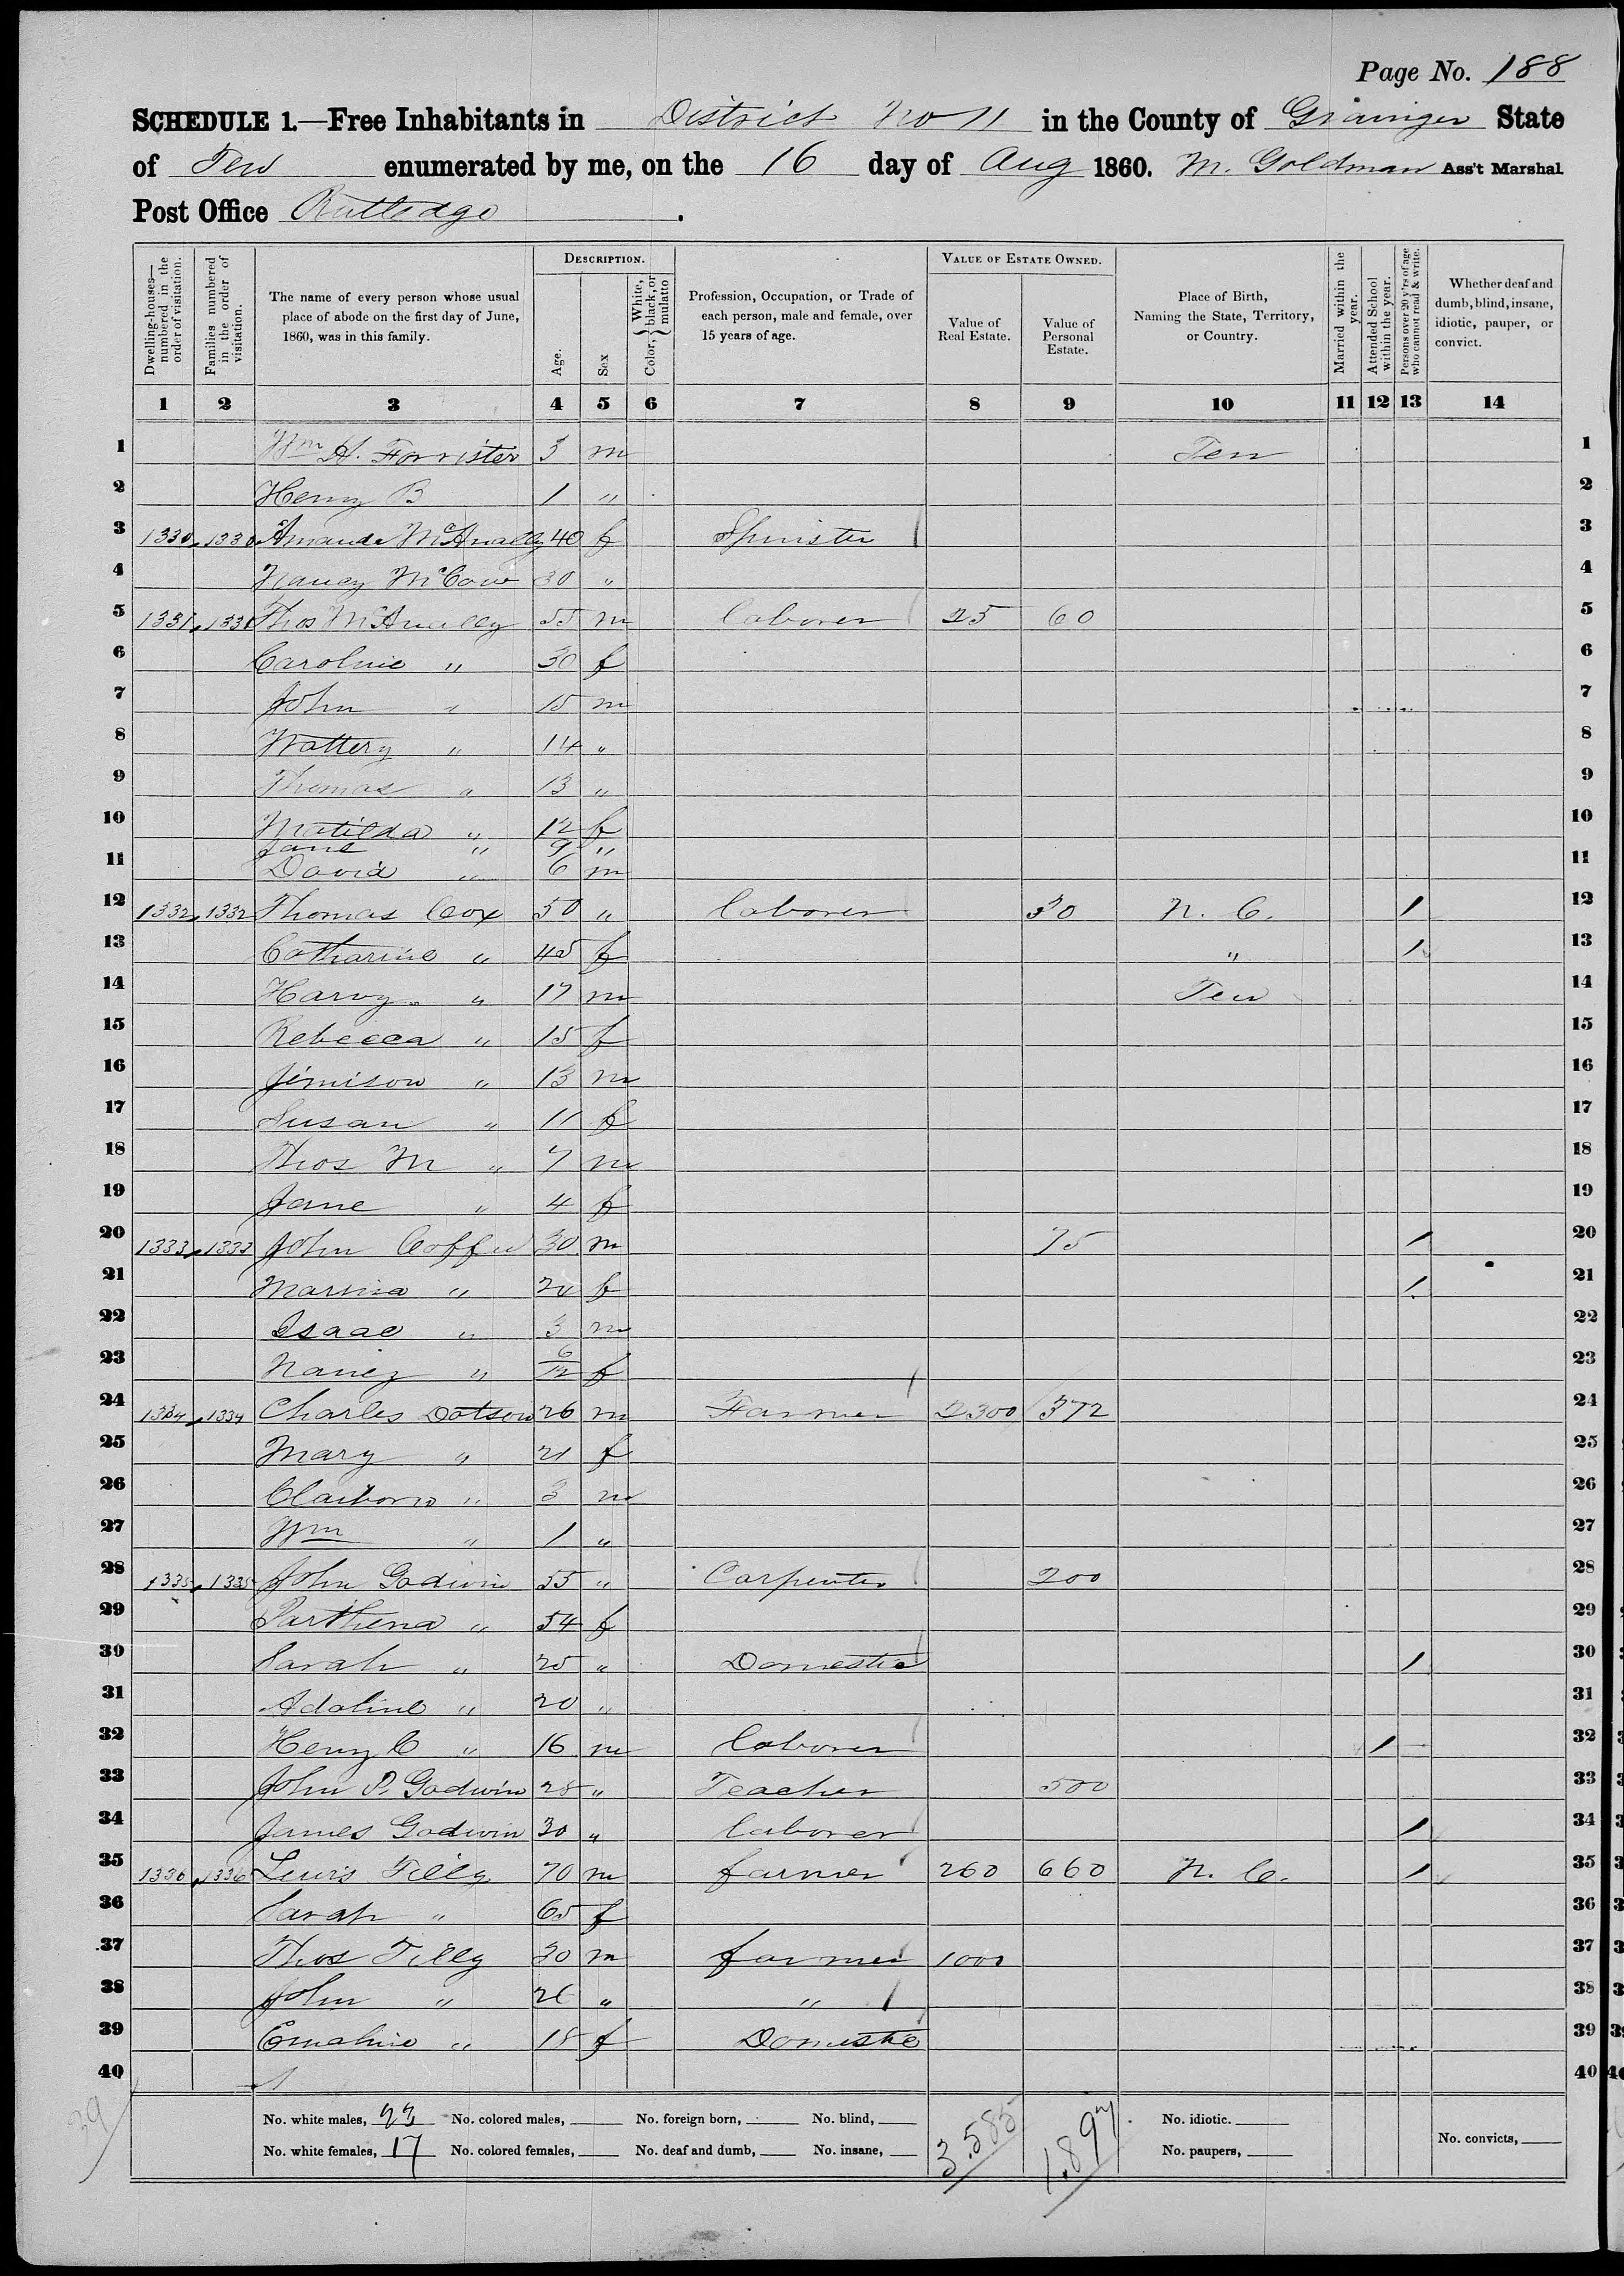 Page No. 188
SCHEDULE 1.—Free Inhabitants in District No 11 in the County of Grainger State
of Ten enumerated by me, on the 16 day of Aug 1860. M. Goldman Ass't Marshal
Post Office Rutledge.
Dwelling-houses—numbered in the order of visitation.
Families numbered in the order of visitation.
The name of every person whose usual place of abode on the first day of June, 1860, was in this family.
DESCRIPTION.
Age.
Sex
Color, { White, black, or mulatto
Profession, Occupation, or Trade of each person, male and female, over 15 years of age.
VALUE OF ESTATE OWNED.
Value of Real Estate.
Value of Personal Estate.
Place of Birth, Naming the State, Territory, or Country.
Married within the year.
Attended School within the year.
Persons over 20 y'rs of age who cannot read & write.
Whether deaf and dumb, blind, insane, idiotic, pauper, or convict.
1 2 3 4 5 6 7 8 9 10 11 12 13 14
1 Wm H. Forrister 3 m Ten 1
2 Henry B 1 " 2
3 1330 1330 Amanda McAnally 40 f Spinister 3
4 Nancy 30 " 4
5 1331 1331 Thos McAnally 55 m laborer 25 60 5
6 Caroline " 30 f 6
7 John " 15 m 7
8 Wattery " 14 " 8
9 Thomas " 13 " 9
10 Matilda " 12 f 10
Jane " 9 "
11 David " 6 m 11
12 1332 1332 Thomas Cox 50 " laborer 30 N. C. / 12
13 Catharine " 45 f " / 13
14 Harvy " 17 m Ten 14
15 Rebecca " 15 f 15
16 Jimison " 13 m 16
17 Susan " 11 f 17
18 Thos M " 7 m 18
19 Jane " 4 f 19
20 1333 1333 John 30 m 75 / 20
21 " f / 21
22 Isaac " 3 m 22
23 Nancy " 6/12 f 23
24 1334 1334 Charles Dotson 26 m Farmer 2300 372 24
25 Mary " 21 f 25
26 Claiborn " 3 m 26
27 Wm " 1 " 27
28 1335 1335 John Godwin 55 " Carpenter 200 28
29 Parthena " 54 f 29
30 Sarah " 25 " Domestic / 30
31 Adaline " 20 " 31
32 Henry C " 16 m laborer / 32
33 John P. Godwin 28 " Teacher 500 33
34 James Godwin 30 " laborer / 34
35 1336 1336 Lewis Tilly 70 m farmer 260 660 N. C. / 35
36 Sarah " 65 f 36
37 Thos Tilly 30 m farmer 1000 37
38 John " 26 " " 38
39 Emaline " 18 f Domestic 39
40 40
39
No. white males, 23 No. colored males, No. foreign born, No. blind, 3.585 1.897 No. idiotic.
No. white females, 17 No. colored females, No. deaf and dumb, No. insane, No. paupers, No. convicts,